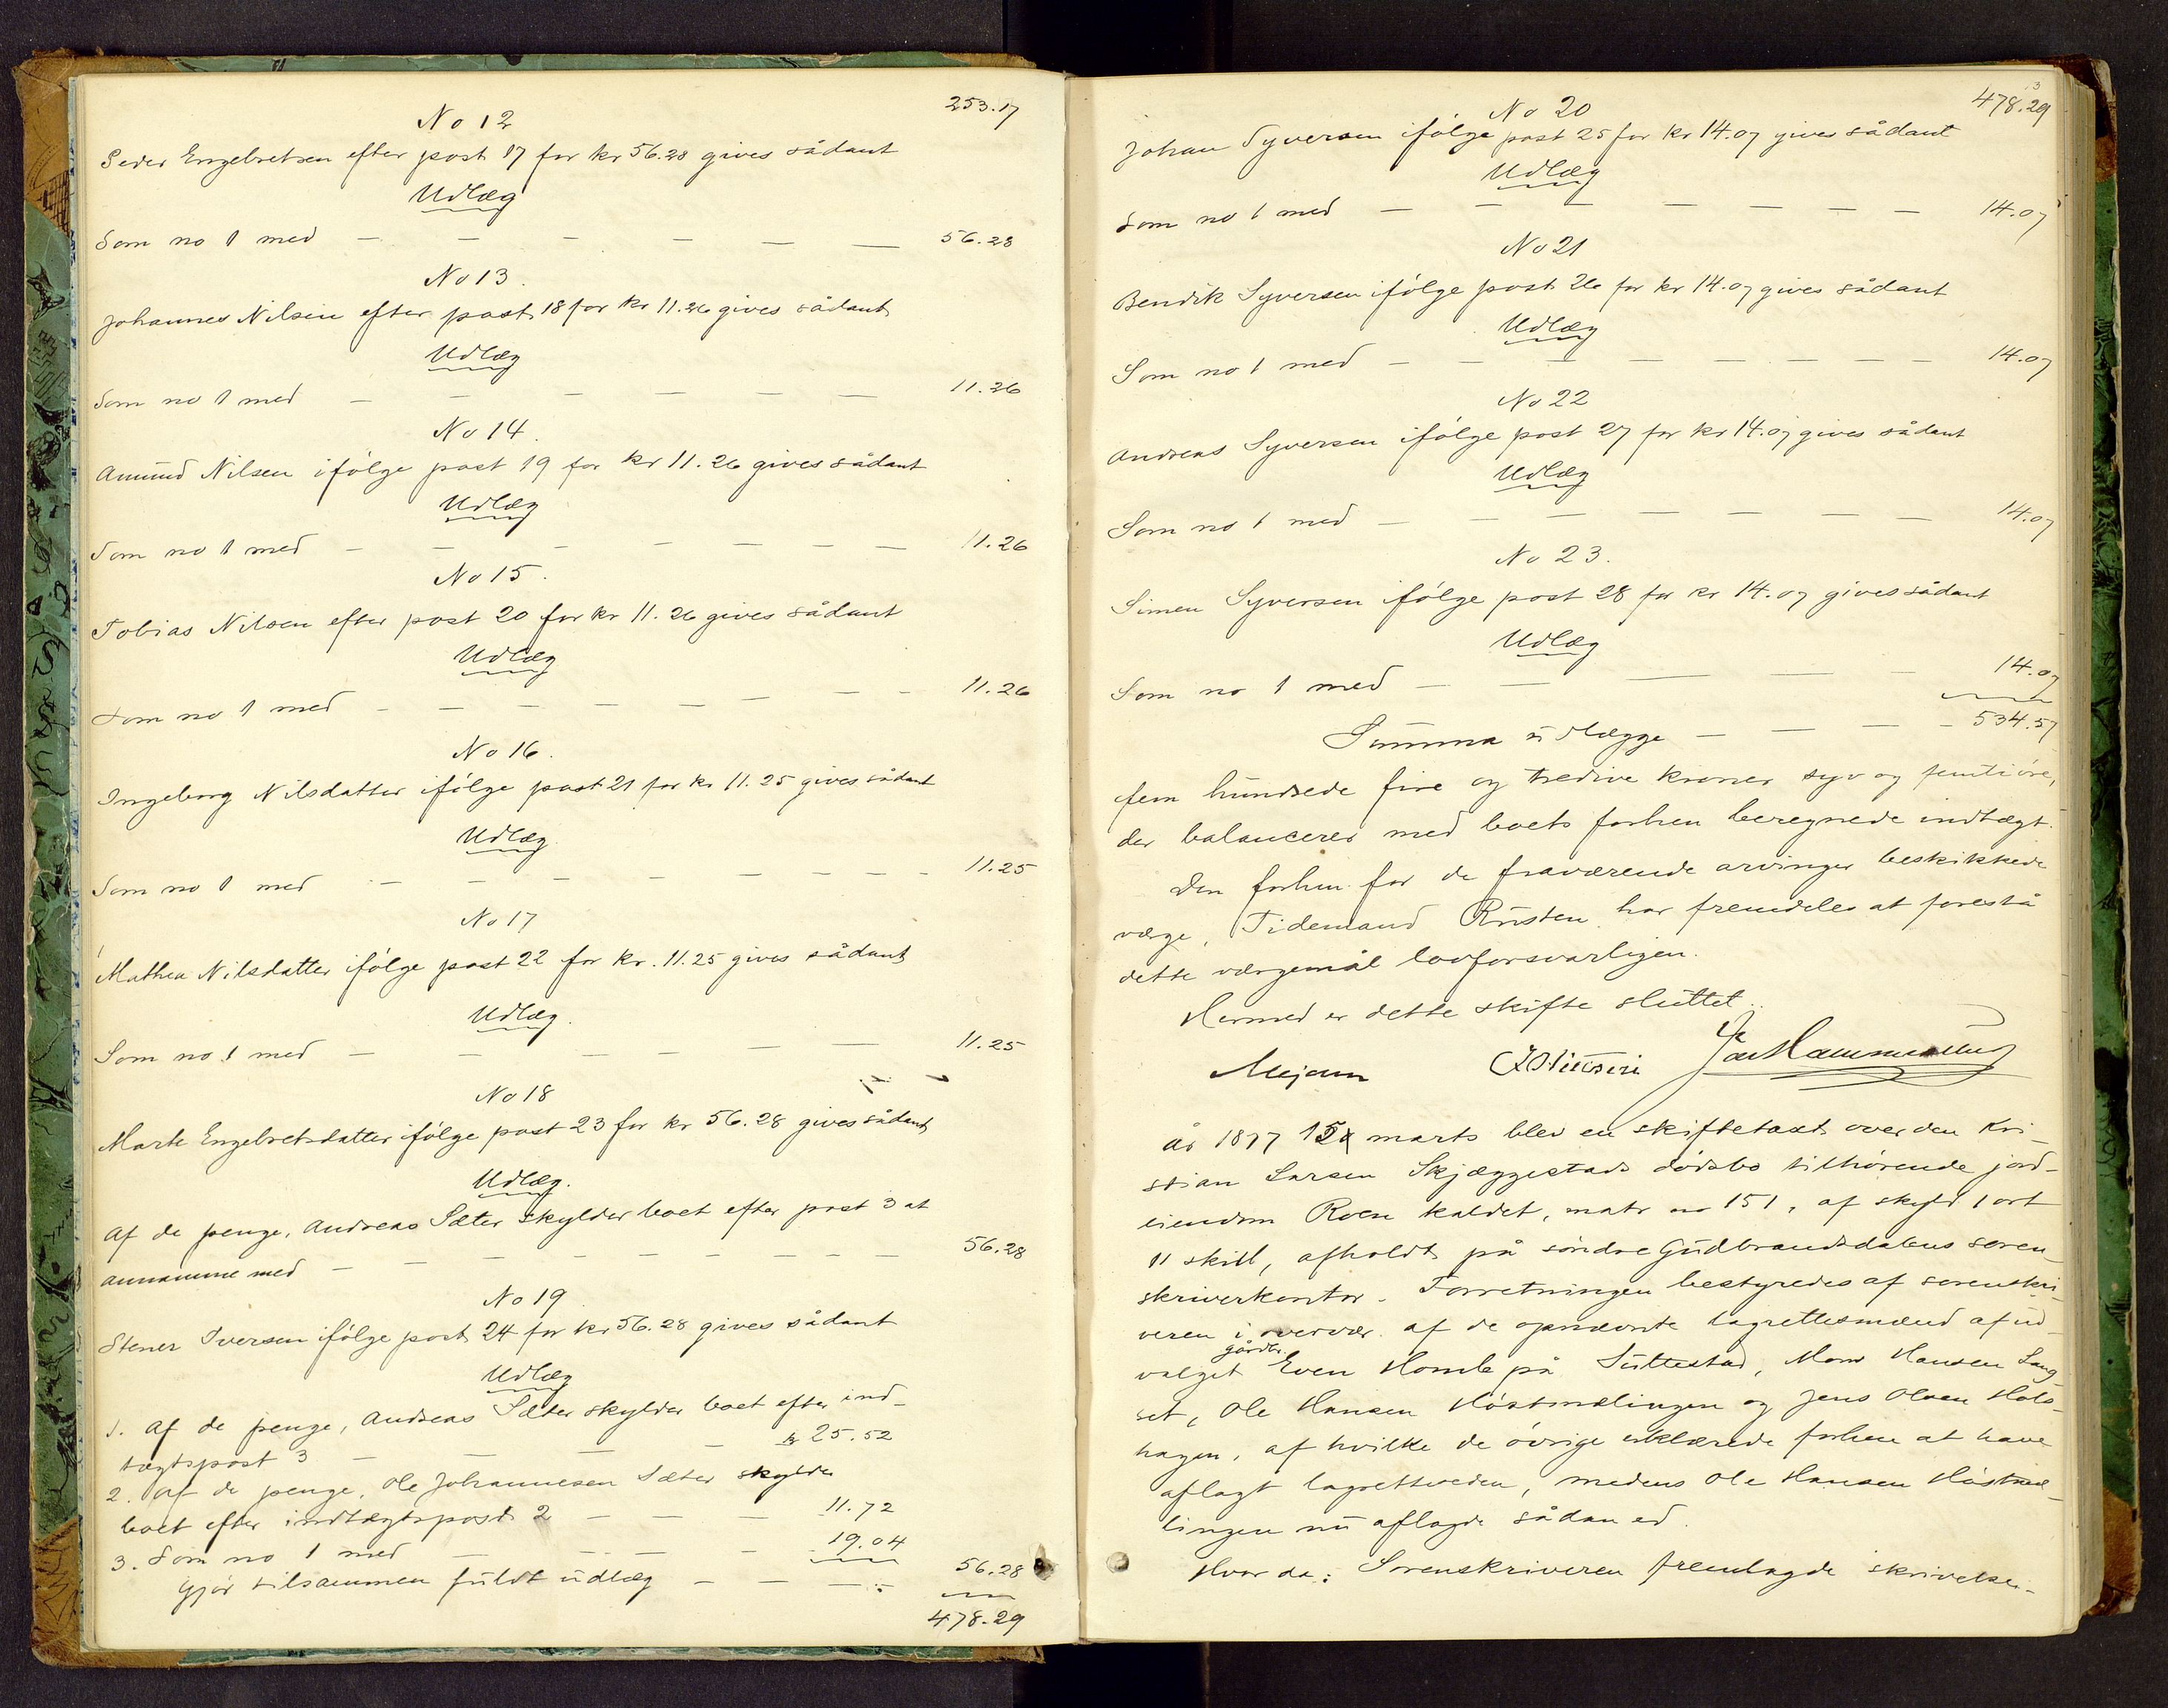 253.17
No 12
Peder Engebretsen efter post 17 for kr 56.28 gives sådant
Udlæg
Som no 1 med — — — — — — 56.28
No 13.
Johannes Nilsen efter post 18 for kr 11.26 gives sådant
Udlæg
Som no 1 med — — — — — — 11.26
No 14.
Amund Nilsen ifølge post 19 for kr 11.26 gives sådant
Udlæg
Som no 1 med — — — — — — — 11.26
No 15.
Tobias Nilsen efter post 20 for kr 11.26 gives sådant
Udlæg
Som no 1 med — — — — — — — — 11.26
No 16.
Ingeborg Nilsdatter ifølge post 21 for kr 11.25 gives sådant
Udlæg
Som no 1 med — — — — — — — — 11.25
No 17
Mathea Nilsdatter ifølge post 22 for kr. 11.25 gives sådant
Udlæg.
Som no 1 med — — — — — — 11.25
No 18
Marte Engebretsdatter ifølge post 23 for kr 56.28 gives sådant
Udlæg.
Af de penge, Andreas Sæter skylder boet efter post 3 at
annamme med — — — — — — — — 56.28
No 19
Stener Iversen ifølge post 24 for kr 56.28 gives sådant
Udlæg
1. Af de penge, Andreas Sæter skylder boet efter ind-
tægtspost 3 — — — — kr 25.52
2. Af de penge, Ole Johannesen Sæter skylder
boet efter indtægtspost 2 — — — 11.72
3. Som no 1 med — — — — 19.04
Gjør tilsammen fuldt udlæg — — — 56.28
478.29
478.29
No 20
Johan Syversen ifølge post 25 for kr 14.07 gives sådant
Udlæg
Som no 1 med — — — — — — — 14.07
No 21
Bendik Syversen ifølge post 26 for kr 14.07 gives sådant
Udlæg
Som no 1 med — — — — — — — 14.07
No 22
Andreas Syversen ifølge post 27 for kr 14.07 gives sådant
Udlæg
Som no 1 med — — — — — — — 14.07
No 23.
Simen Syversen ifølge post 28 for kr 14.07 gives sådant
Udlæg
Som no 1 med — — — — — 14.07
Summa udlægge — — — — 534.57
fem hundrede fire og tredive kroner syv og femti øre,
der balancerer med boets forhen beregnede indtægt.
Den forhen for de fraværende arvinger beskikkede
værge, Tidemand Rusten har fremdeles at forestå
dette værgemål lovforsvarligen.
Hermed er dette skifte sluttet.
Mejann
År 1877 15 marts blev en skiftetaxt over den Kri-
stian Larsen Skjæggestads dødsbo tilhørende jord-
eiendom Roen kaldet, matr no 151, af skyld 1 ort
11 skill, afholdt på søndre Gudbrandsdalens soren-
skriverkontor. Forretningen bestyredes af sorenskri-
veren i overvær. af de opnævnte lagrettesmænd af ud-
gårdbr.
valget Even Homle på Suttestad, Mons Hansen Lang-
set, Ole Hansen Høstmælingen og Jens Olsen Hols-
hagen, af hvilke de øvrige erklærede forhen at have
aflagt lagretteseden, medens Ole Hansen Høstmæ-
lingen nu aflagde sådan ed.
Hvor da: Sorenskriveren fremlagde skrivelse-